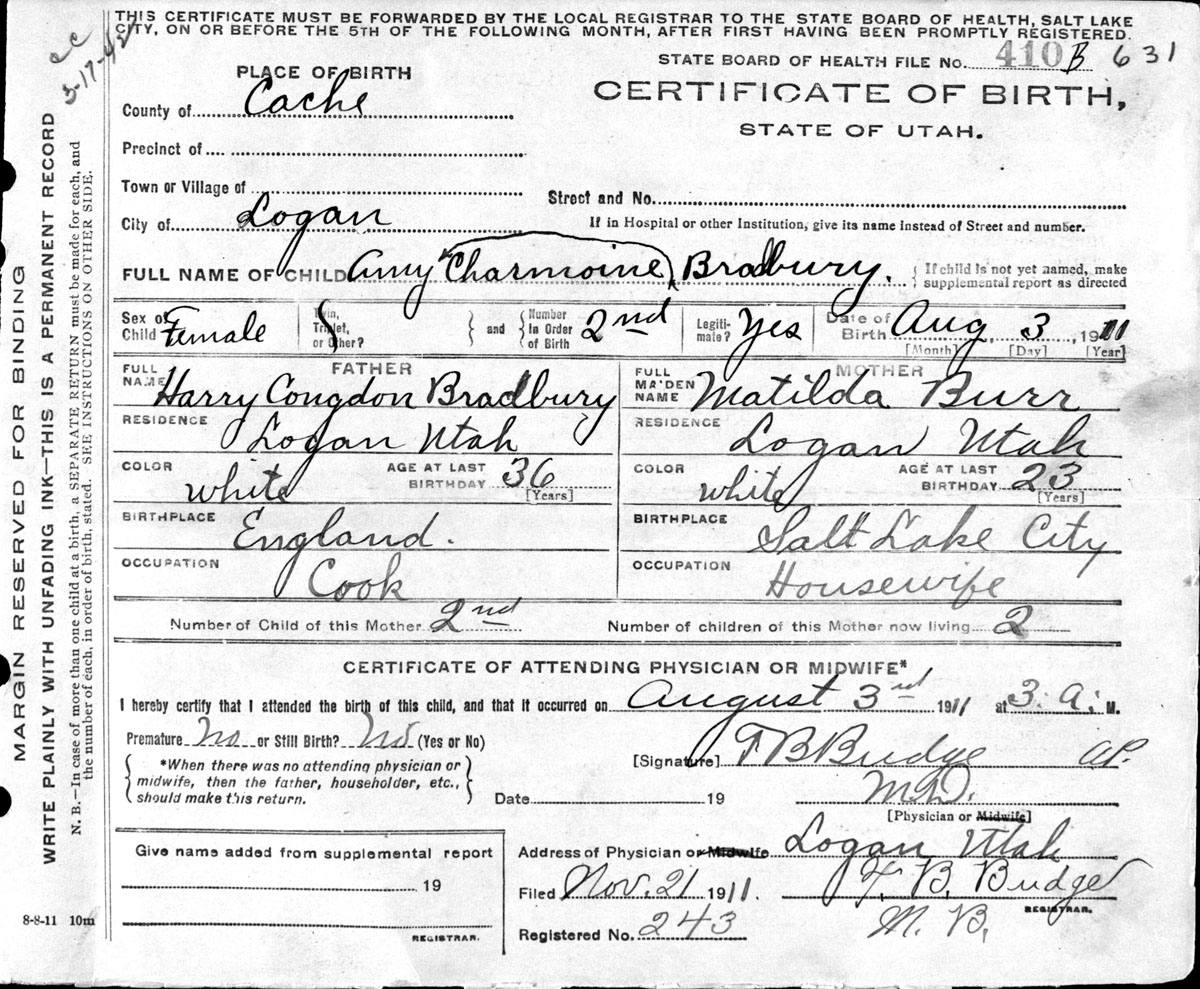 THIS CERTIFICATE MUST BE FORWARDED BY THE LOCAL REGISTRAR TO THE STATE BOARD OF HEALTH, SALT LAKE
CITY, ON OR BEFORE THE 5TH OF THE FOLLOWING MONTH, AFTER FIRST HAVING BEEN PROMPTLY REGISTERED.
cc
3-17-42
STATE BOARD OF HEALTH FILE No. 410 B 631
PLACE OF BIRTH
CERTIFICATE OF BIRTH,
County of Cache
STATE OF UTAH.
Precinct of
Town or Village of
Street and No.
City of Logan
If in Hospital or other Institution, give its name instead of Street and number.
FULL NAME OF CHILD Amy Charmoine Bradbury. If child is not yet named, make
supplemental report as directed
Sex of Child Female Twin, Triplet, or Other? and Number in Order of Birth 2nd Legiti-mate? Yes Date of Birth Aug 3, 1911
[Month] [Day] [Year]
FATHER MOTHER
FULL NAME Harry Congdon Bradbury FULL MAIDEN NAME Matilda Burr
RESIDENCE Logan Utah RESIDENCE Logan Utah
COLOR white AGE AT LAST BIRTHDAY 36 [Years] COLOR white AGE AT LAST BIRTHDAY 23 [Years]
BIRTHPLACE England. BIRTHPLACE Salt Lake City
OCCUPATION Cook OCCUPATION Housewife
Number of Child of this Mother 2nd Number of children of this Mother now living 2
CERTIFICATE OF ATTENDING PHYSICIAN OR MIDWIFE*
I hereby certify that I attended the birth of this child, and that it occurred on August 3rd 1911 at 3. a. M.
Premature No or Still Birth? No (Yes or No)
*When there was no attending physician or
midwife, then the father, householder, etc.,
should make this return.
[Signature] T B Budge
M.D.
Date 19
[Physician or Midwife]
Give name added from supplemental report
19
REGISTRAR.
Address of Physician or Midwife Logan Utah
Filed Nov. 21 1911. T. B. Budge
REGISTRAR.
Registered No. 243 M. B.
8-8-11 10m
MARGIN RESERVED FOR BINDING
WRITE PLAINLY WITH UNFADING INK—THIS IS A PERMANENT RECORD
N. B.—In case of more than one child at a birth, a SEPARATE RETURN must be made for each, and
the number of each, in order of birth, stated. SEE INSTRUCTIONS ON OTHER SIDE.